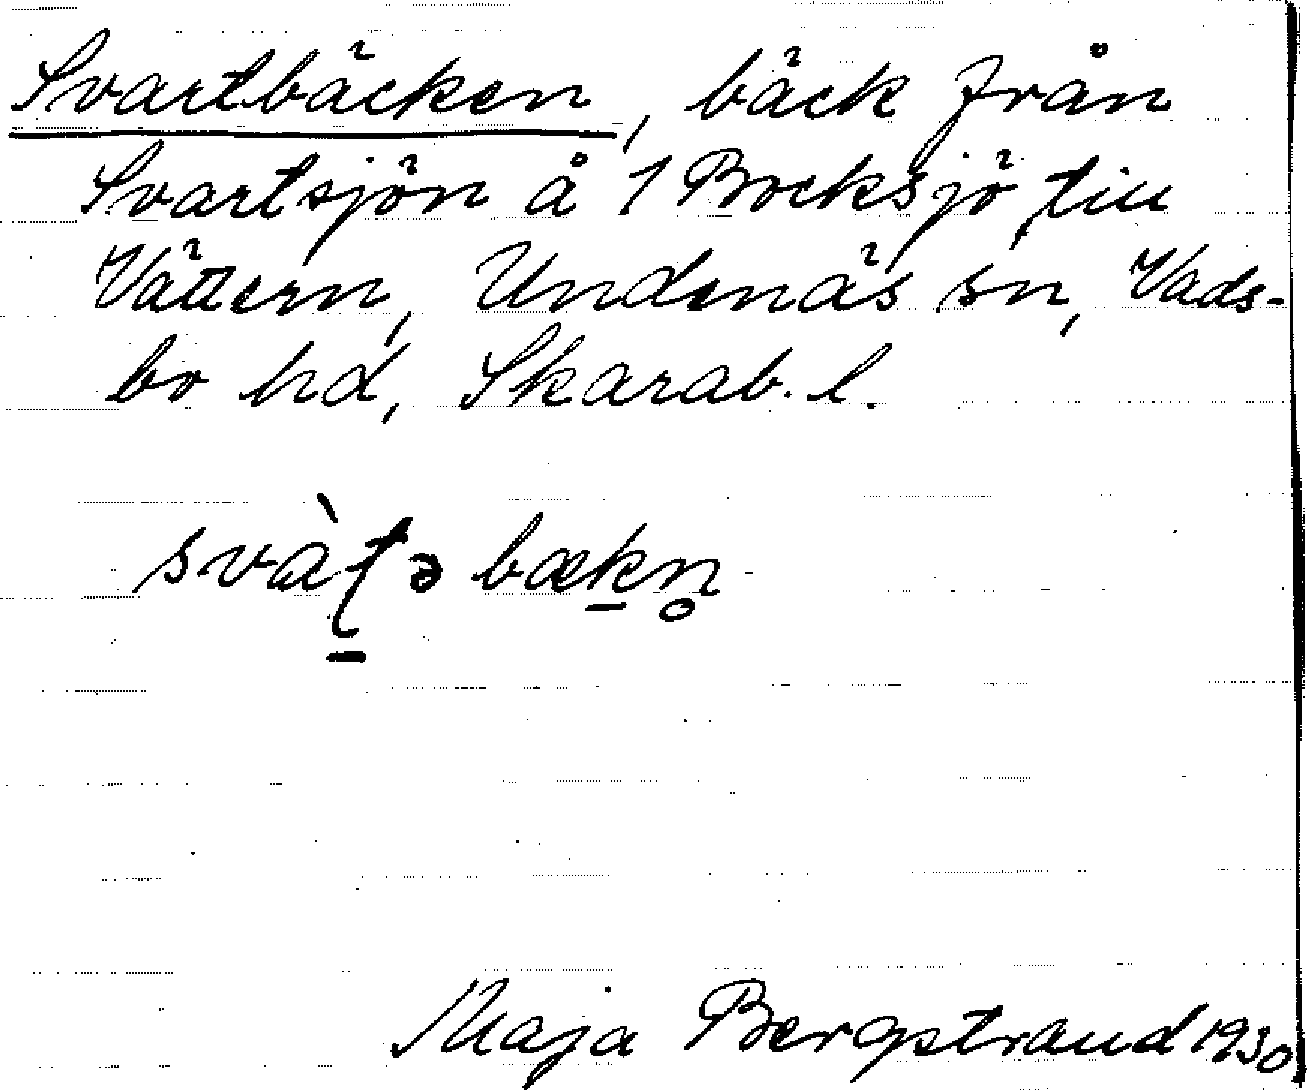 Svartbäcken, bäck från
Svartsjön å 1 Bocksjö till
Vättern, Undenäs sn, Vads-
bo hd, Skarab. l.
svàʈ̠ə bæk̠n̥
Maja Bergstrand 1930